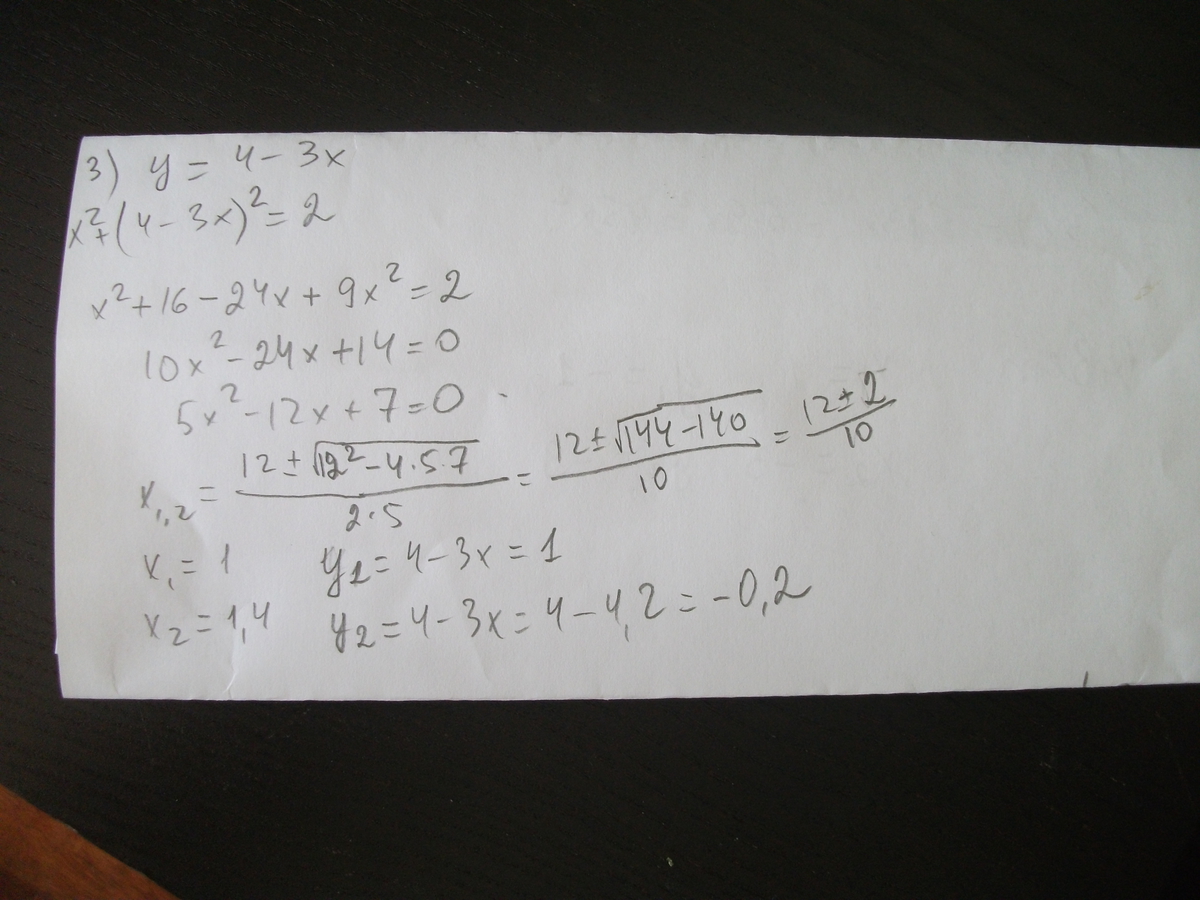 3) y = 4 - 3x
x² + (4 - 3x)² = 2
x² + 16 - 24x + 9x² = 2
10x² - 24x + 14 = 0
5x² - 12x + 7 = 0
x₁,₂ = (12 ± √(12² - 4·5·7))/(2·5) = (12 ± √(144 - 140))/10 = (12 ± 2)/10
x₁ = 1 y₁ = 4 - 3x = 1
x₂ = 1,4 y₂ = 4 - 3x = 4 - 4,2 = -0,2